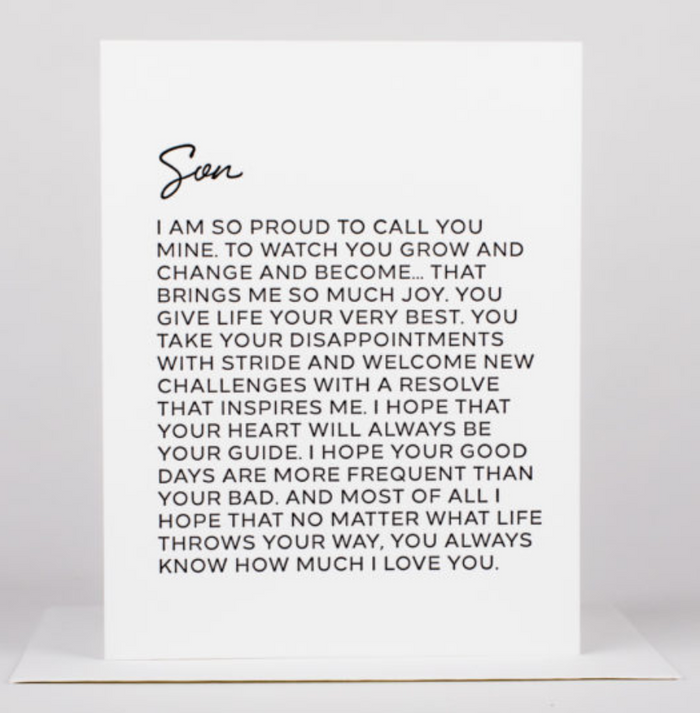 Son
I AM SO PROUD TO CALL YOU
MINE. TO WATCH YOU GROW AND
CHANGE AND BECOME... THAT
BRINGS ME SO MUCH JOY. YOU
GIVE LIFE YOUR VERY BEST. YOU
TAKE YOUR DISAPPOINTMENTS
WITH STRIDE AND WELCOME NEW
CHALLENGES WITH A RESOLVE
THAT INSPIRES ME. I HOPE THAT
YOUR HEART WILL ALWAYS BE
YOUR GUIDE. I HOPE YOUR GOOD
DAYS ARE MORE FREQUENT THAN
YOUR BAD. AND MOST OF ALL I
HOPE THAT NO MATTER WHAT LIFE
THROWS YOUR WAY, YOU ALWAYS
KNOW HOW MUCH I LOVE YOU.